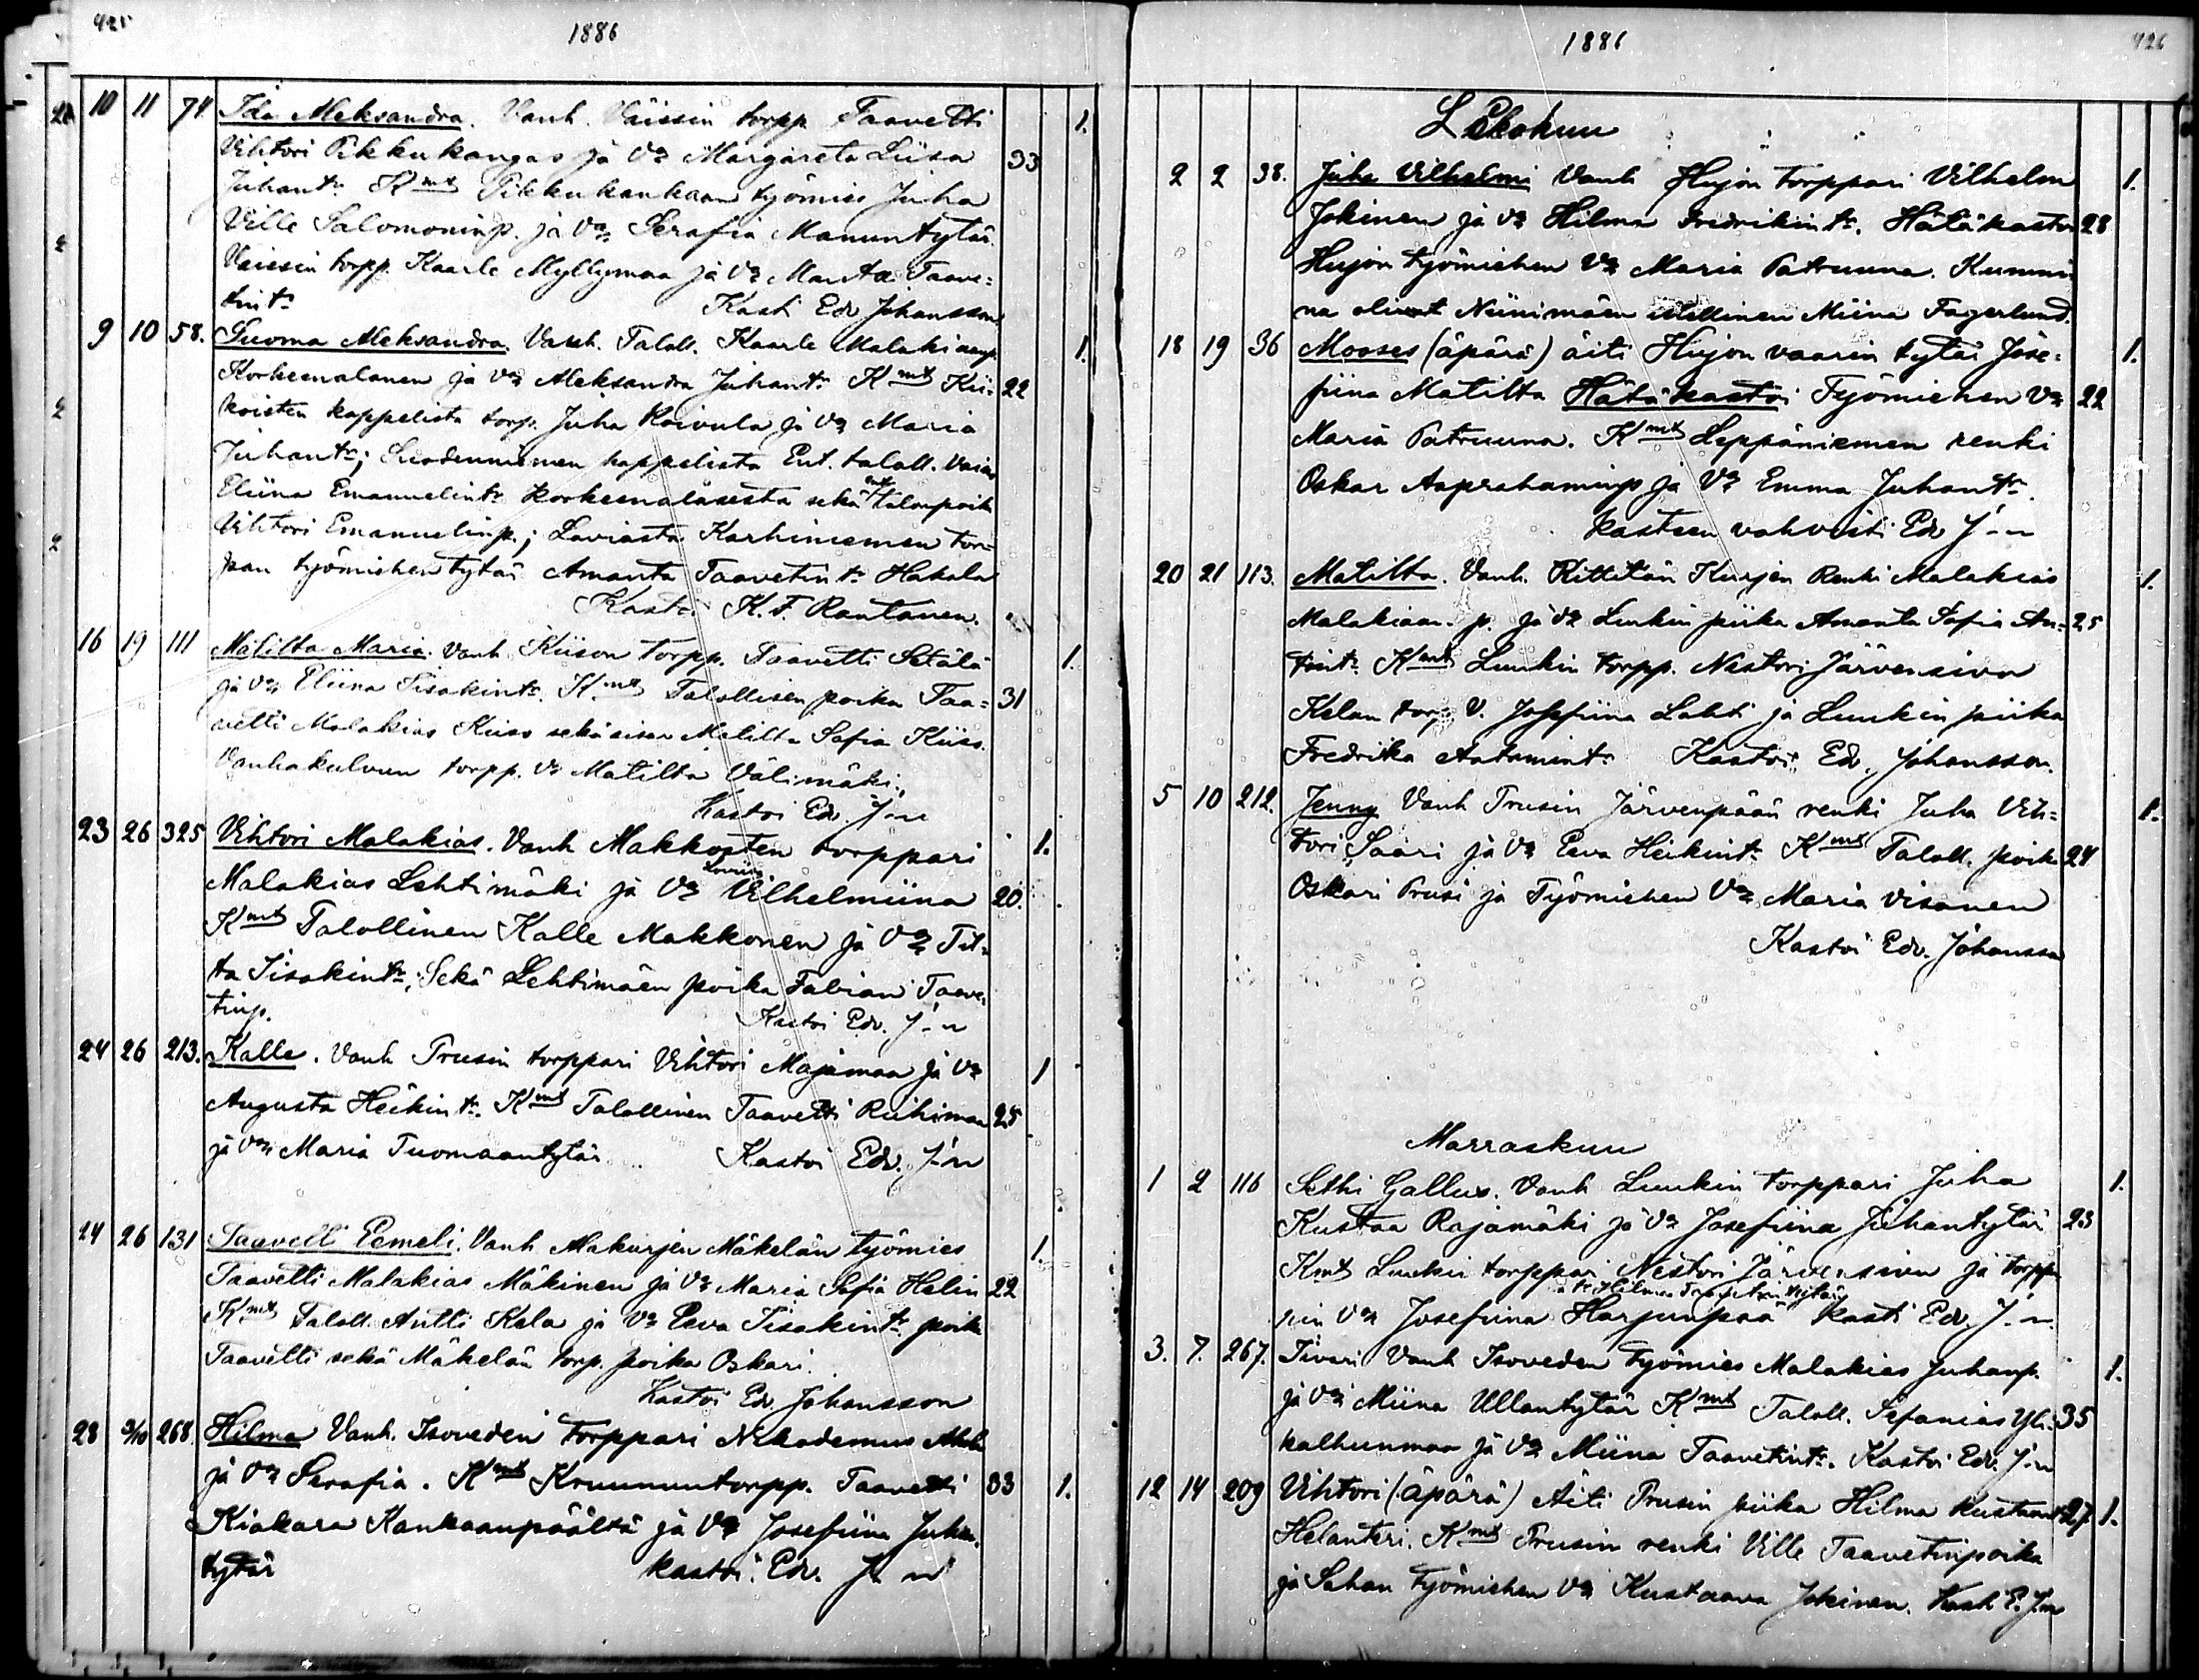 425
1886
10 11 74 Ida Aleksandra. Vanh. Väissin torpp. Taavetti
Vihtori Pikkukangas ja Vo Margareta Liisa 33
Juhantr. Kmt Pikkukankaan työmies Juha
Ville Salomoninp. ja Vo Serafia Manuntytär.
Väissin torpp. Kaarle Myllymaa ja Vo Manta Taave-
tintr Kasti Edv Johansson
9 10 58. Suoma Aleksandra. Vanh. Taloll. Kaarle Malakiaanp.
Korkeenalanen ja Vo Aleksandra Juhantr Kmt Kii- 22
koisten kappelista torp. Juha Koivula ja Vo Maria
Juhantr; Suodenniemen kappelista Ent. taloll. Vaimo
Eliina Emanuelintr Korkeenaläsesta sekä talonpoika
Vihtori Emanuelinp.; Laviasta Karhiniemen tor-
pan työmiehen tytär Amanta Taavetintr Hakala
Kastoi K. F. Rantanen.
16 19 111 Matilta Maria. Vanh Kiison torpp. Taavetti Setälä 1.
ja Vo Eliina Iisakintr. Kmt Talollisen poika Taa- 31
vetti Malakias Kiiso sekä sisar Matilta Sofia Kiiso.
Vanhakulvun torpp. Vo Matilta Välimäki.
Kastoi Edv. J-n
23 26 325 Vihtori Malakias. Vanh Makkosten torppari 1.
Loviisa
Malakias Lehtimäki ja Vo Vilhelmiina 20.
Kmt Talollinen Kalle Makkonen ja Vo Til-
ta Iisakintr, Sekä Lehtimäen poika Fabian Taave-
tinp. Kastoi Edv. J-n
24 26 213. Kalle. Vanh Prusin torppari Vihtori Majamaa ja Vo 1
Augusta Heikintr. Kmt Talollinen Taavetti Riihimaa 25
ja Vo Maria Tuomaantytär. Kastoi Edv. J-n
24 26 131 Taavetti Eemeli. Vanh Makurjen Mäkelän työmies 1.
Taavetti Malakias Mäkinen ja Vo Maria Sofia Helin 22
Kmt Taloll. Antti Kala ja Vo Eeva Iisakintr poika
Taavetti sekä Mäkelän torp. poika Oskari.
Kastoi Edv. Johansson
28 3/10 268. Hilma Vanh. Isoveden Torppari Nikodemus
ja Vo Serafia. Kmt Kruununtorpp. Taavetti 33 1.
Kiakara Kankaanpäältä ja Vo Josefiina Juhan-
tytär kastoi. Edv. J-n
1886
426
Lokakuu
2 2 38. Juha Vilhelmi Vanh Hujon Torppari Vilhelm 1.
Jokinen ja Vo Hilma Fredrikintr. Hätäkastoi 28
Hujon työmiehen Vo Maria Patruuna. Kummi-
na olivat Niinimäen itsellinen Miina Fagerlund.
18 19 36 Mooses (äpärä) äiti Hujon vaarin tytär Jose- 1.
fiina Matilta Hätäkastoi Työmiehen Vo 22
Maria Patruuna. Kmt Leppäniemen renki
Oskar Aaprahaminp ja Vo Emma Juhantr.
Kasteen vahvisti Edv J-n
20 21 113. Matilta. Vanh. Kittilän Kurjen Renki Malakias 1.
Malakiaan. p. ja Vo Luukin piika Amanta Sofia An- 25
tintr Kmt Luukin torpp. Nestori Järvensivu
Kelan torp V. Josefiina Lahti ja Luukin piika
Fredrika Aatamintr Kastoi Edv. Johansson.
5 10 212. Jenny Vanh Prusin Järvenpään renki Juha Vih- 1.
tori Saari ja Vo Eeva Heikintr Kmt Taloll. poika 24
Oskari Prusi ja Työmiehen Vo Maria Visanen
Kastoi Edv. Johansson
Marraskuu
1 2 116 Sethi Gallus. Vanh Luukin torppari Juha 1.
Kustaa Rajamäki ja Vo Josefiina Juhantytär 23
Kmt Luukin torppari Nestori Järvensivu ja torppa-
rin Vo Josefiina Harjunpää kasti Edv. J-n.
3. 7. 267. Iivari Vanh Isoveden työmies Malakias Juhanp. 1.
ja Vo Miina Ullantytär Kmt Taloll. Sefanias Yli- 35
kalhunmaa ja Vo Miina Taavetintr. Kastoi Edv. J-n
12 14 209 Vihtori (äpärä) Äiti Prusin piika Hilma Kustaantr 27. 1.
Helanteri. Kmt Prusin renki Ville Taavetinpoika
ja Sahan työmiehen Vo Kustaava Jokinen. Kasti E. J-n